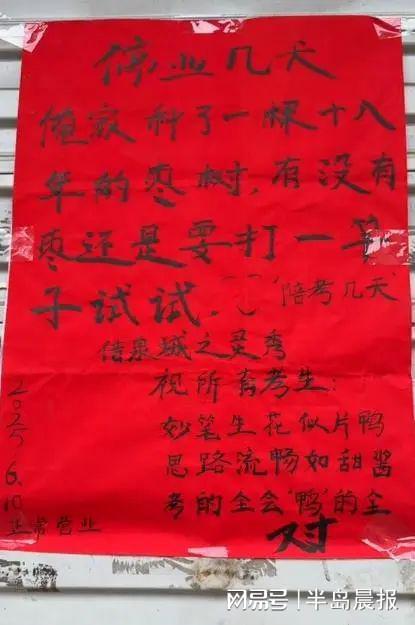 停业几天
俺家种了一棵十八
年的枣树,有没有
枣还是要打一竿
子试试。
陪考几天
借泉城之灵秀
祝所有考生:
妙笔生花似片鸭
思路流畅如甜酱
考的全会"鸭"的全
对
2025
6.10
正常营业
网易号 | 半岛晨报